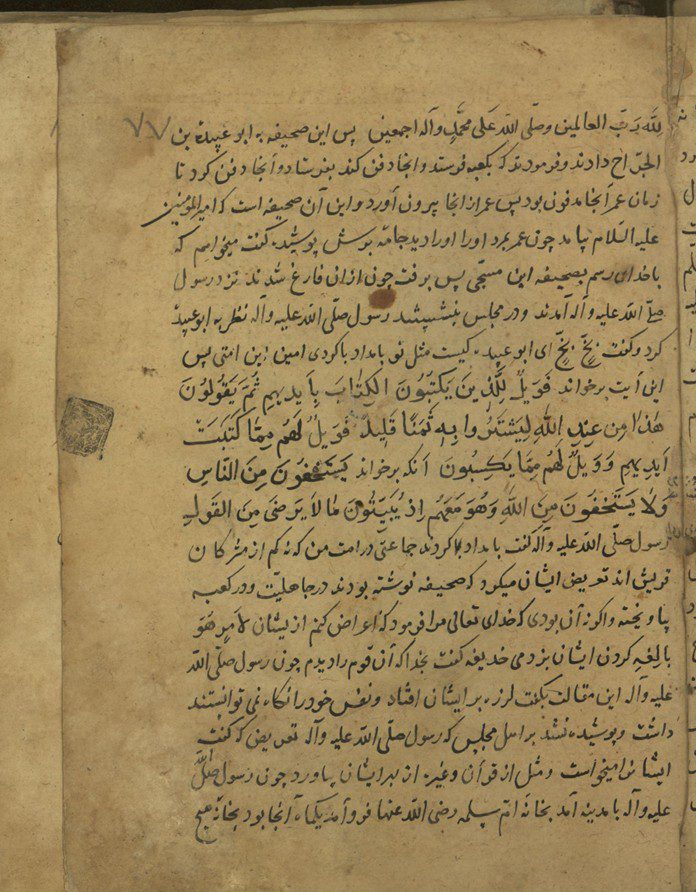 لله ربّ العالمین وصلّی الله علی محمّد وآله اجمعین پس این صحیفه به ابو عبیدة بن
الجرّاح دادند وفرمودند که بکعبه فرستد وآنجا دفن کند بفرستاد وآنجا دفن کرد تا
زمان عمر آنجا مدفون بود پس عمر از آنجا بیرون آورد واین آن صحیفه است که امیرالمؤمنین
علیه السّلام بیامد چون عمر بمرد اورا اورا دید جامه بوش پوشیده کفت میخواهم که
باخدای رسم بصحیفه این مسجّی پس برفت چون از آن فارغ شدند نزد رسول
صلّی الله علیه وآله آمدند ودر مجلس بنشستند رسول صلّی الله علیه وآله نظر به ابو عبیدة
کرد وکفت بخّ بخّ ای ابو عبیده کیست مثل تو بامداد باکردی امین این امتی پس
این آیت برخواند فَوَیلٌ لِلَّذینَ یَکتُبُونَ الکِتابَ بِاَیدیهِم ثُمَّ یَقُولُونَ
هٰذا مِن عِندِ اللهِ لِیَشتَرُوا بِهِ ثَمَنًا قَلیلاً فَوَیلٌ لَهُم مِمّا کَتَبَت
اَیدیهِم وَوَیلٌ لَهُم مِمّا یَکسِبُونَ آنکه برخواند یَستَخفُونَ مِنَ النّاسِ
وَلا یَستَخفُونَ مِنَ اللهِ وَهُوَ مَعَهُم اِذ یُبَیِّتُونَ مَا لا یَرضی مِنَ القَولِ
رسول صلّی الله علیه وآله کفت بامداد کردند جماعتی در امت من که نه کم از مشرکان
قریش اند تعریض ایشان میکرد که صحیفه نوشته بودند در جاهلیّت ودر کعبه
بیاویخته واکر نه آن بودی که خدای تعالی مرا فرمود که اعراض کنم از یشان لامرٍ هُوَ
بالِغُه کردن ایشان بزدمی حذیفه کفت بخدا که آن قوم را دیدم چون رسول صلّی الله
علیه وآله این مقالت بکفت لرزه بر ایشان افتاد ونفس خود را نکاه نمی توانستند
داشت وپوشیده نشد بر اهل مجلس که رسول صلّی الله علیه وآله تعریض که کفت
ایشانرا میخواست ومثل از قرآن وغیره از بهر ایشان بیاورد چون رسول صلّی الله
علیه وآله بامدینه آمد بخانهٔ امّ سلمه رضی الله عنها فرو آمد یکماه آنجا بود بخانهٔ هیچ